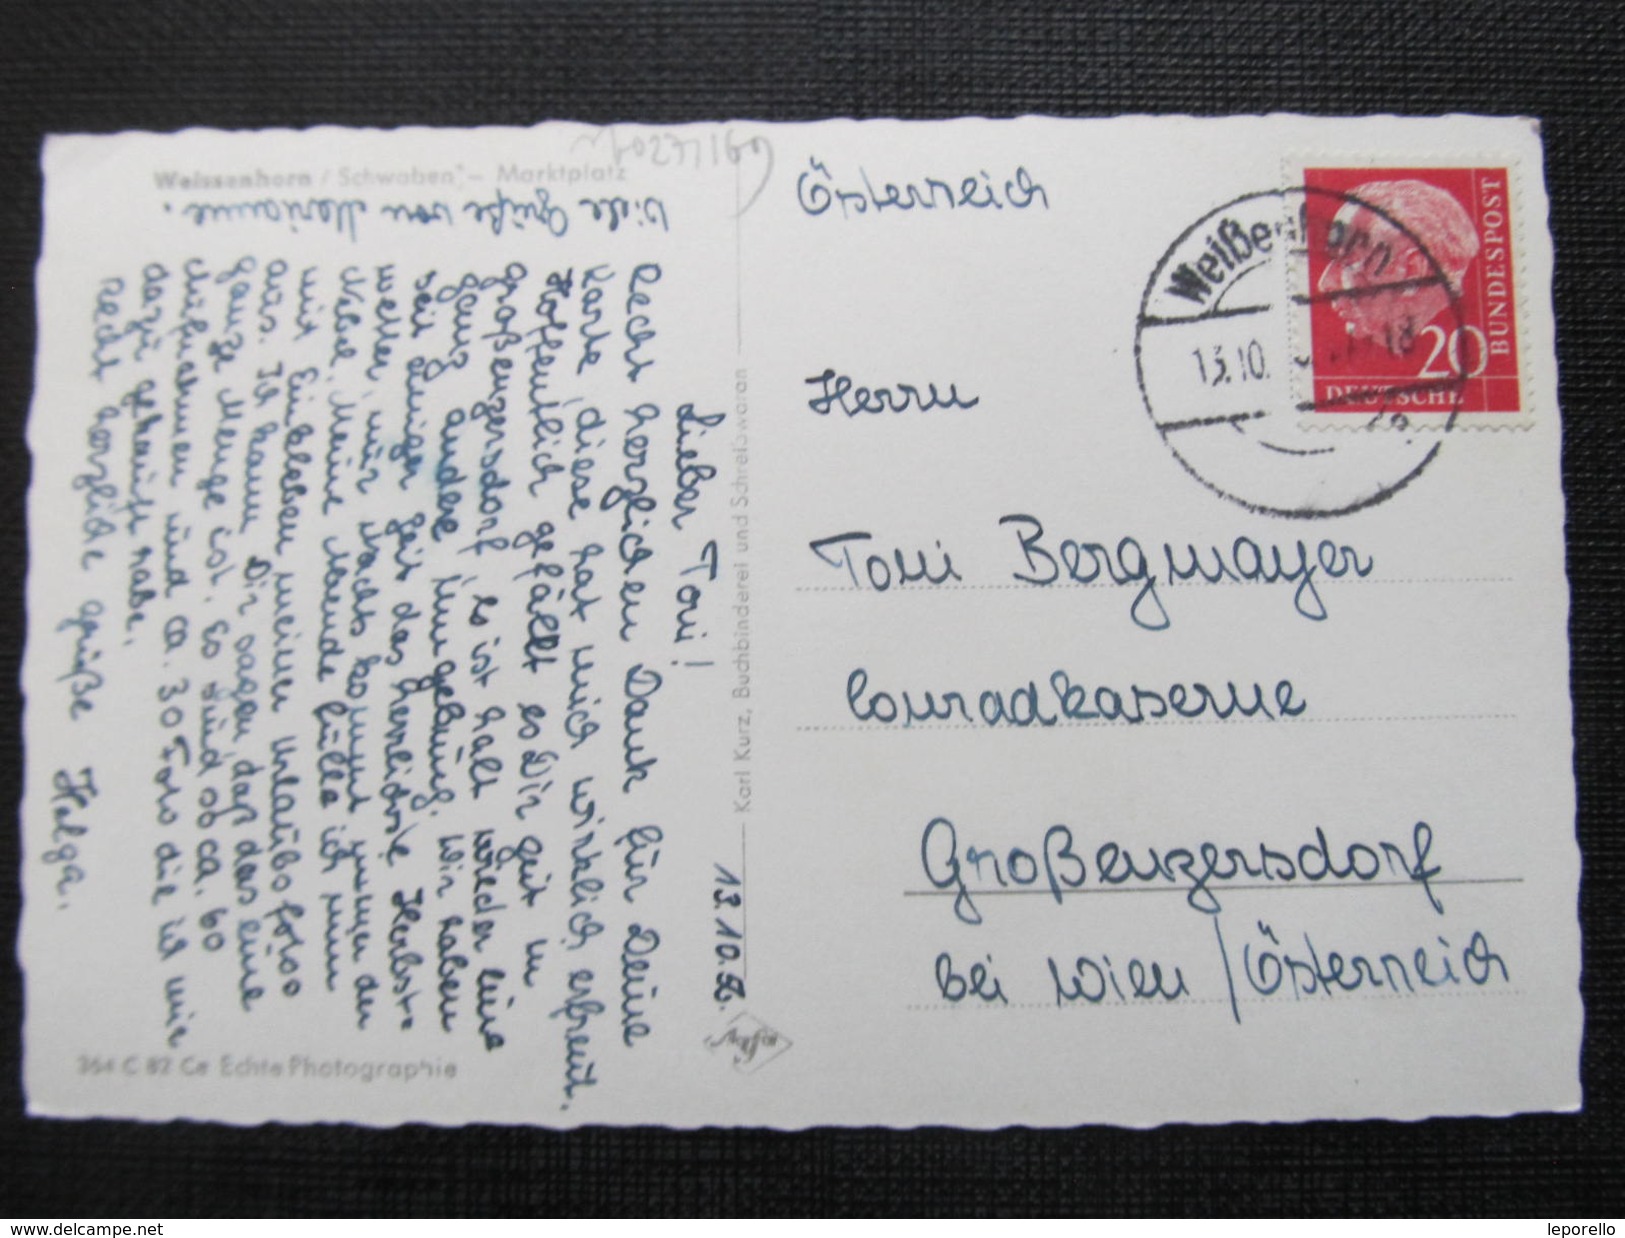 Weissenhorn / Schwaben – Marktplatz
Viele Grüße von Marianne.
13.10.56.
Lieber Toni!
Recht herzlichen Dank für Deine
Karte, diese hat mich wirklich erfreut.
Hoffentlich gefällt es Dir gut in
Großenzersdorf, es ist halt wieder eine
ganz andere Umgebung. Wir haben
seit einiger Zeit das herrlichste Herbst-
wetter, nur Nachts kommt immer der
Nebel. Meine Abende fülle ich nun
mit Einkleben meiner Urlaubsfotos
aus. Ich kann Dir sagen, daß das eine
ganze Menge ist. Es sind ob ca. 60
Aufnahmen und ca. 30 Fotos die ich mir
dazu gekauft habe.
Recht herzliche Grüße Helga.
364 C 82 Ce Echte Photographie
Karl Kurz, Buchbinderei und Schreibwaren
Agfa
Österreich
Weißenhorn
13.10.
DEUTSCHE
BUNDESPOST
20
Herrn
Toni Bergmayer
Conradkaserne
Großenzersdorf
bei Wien / Österreich
www.delcampe.net
leporello